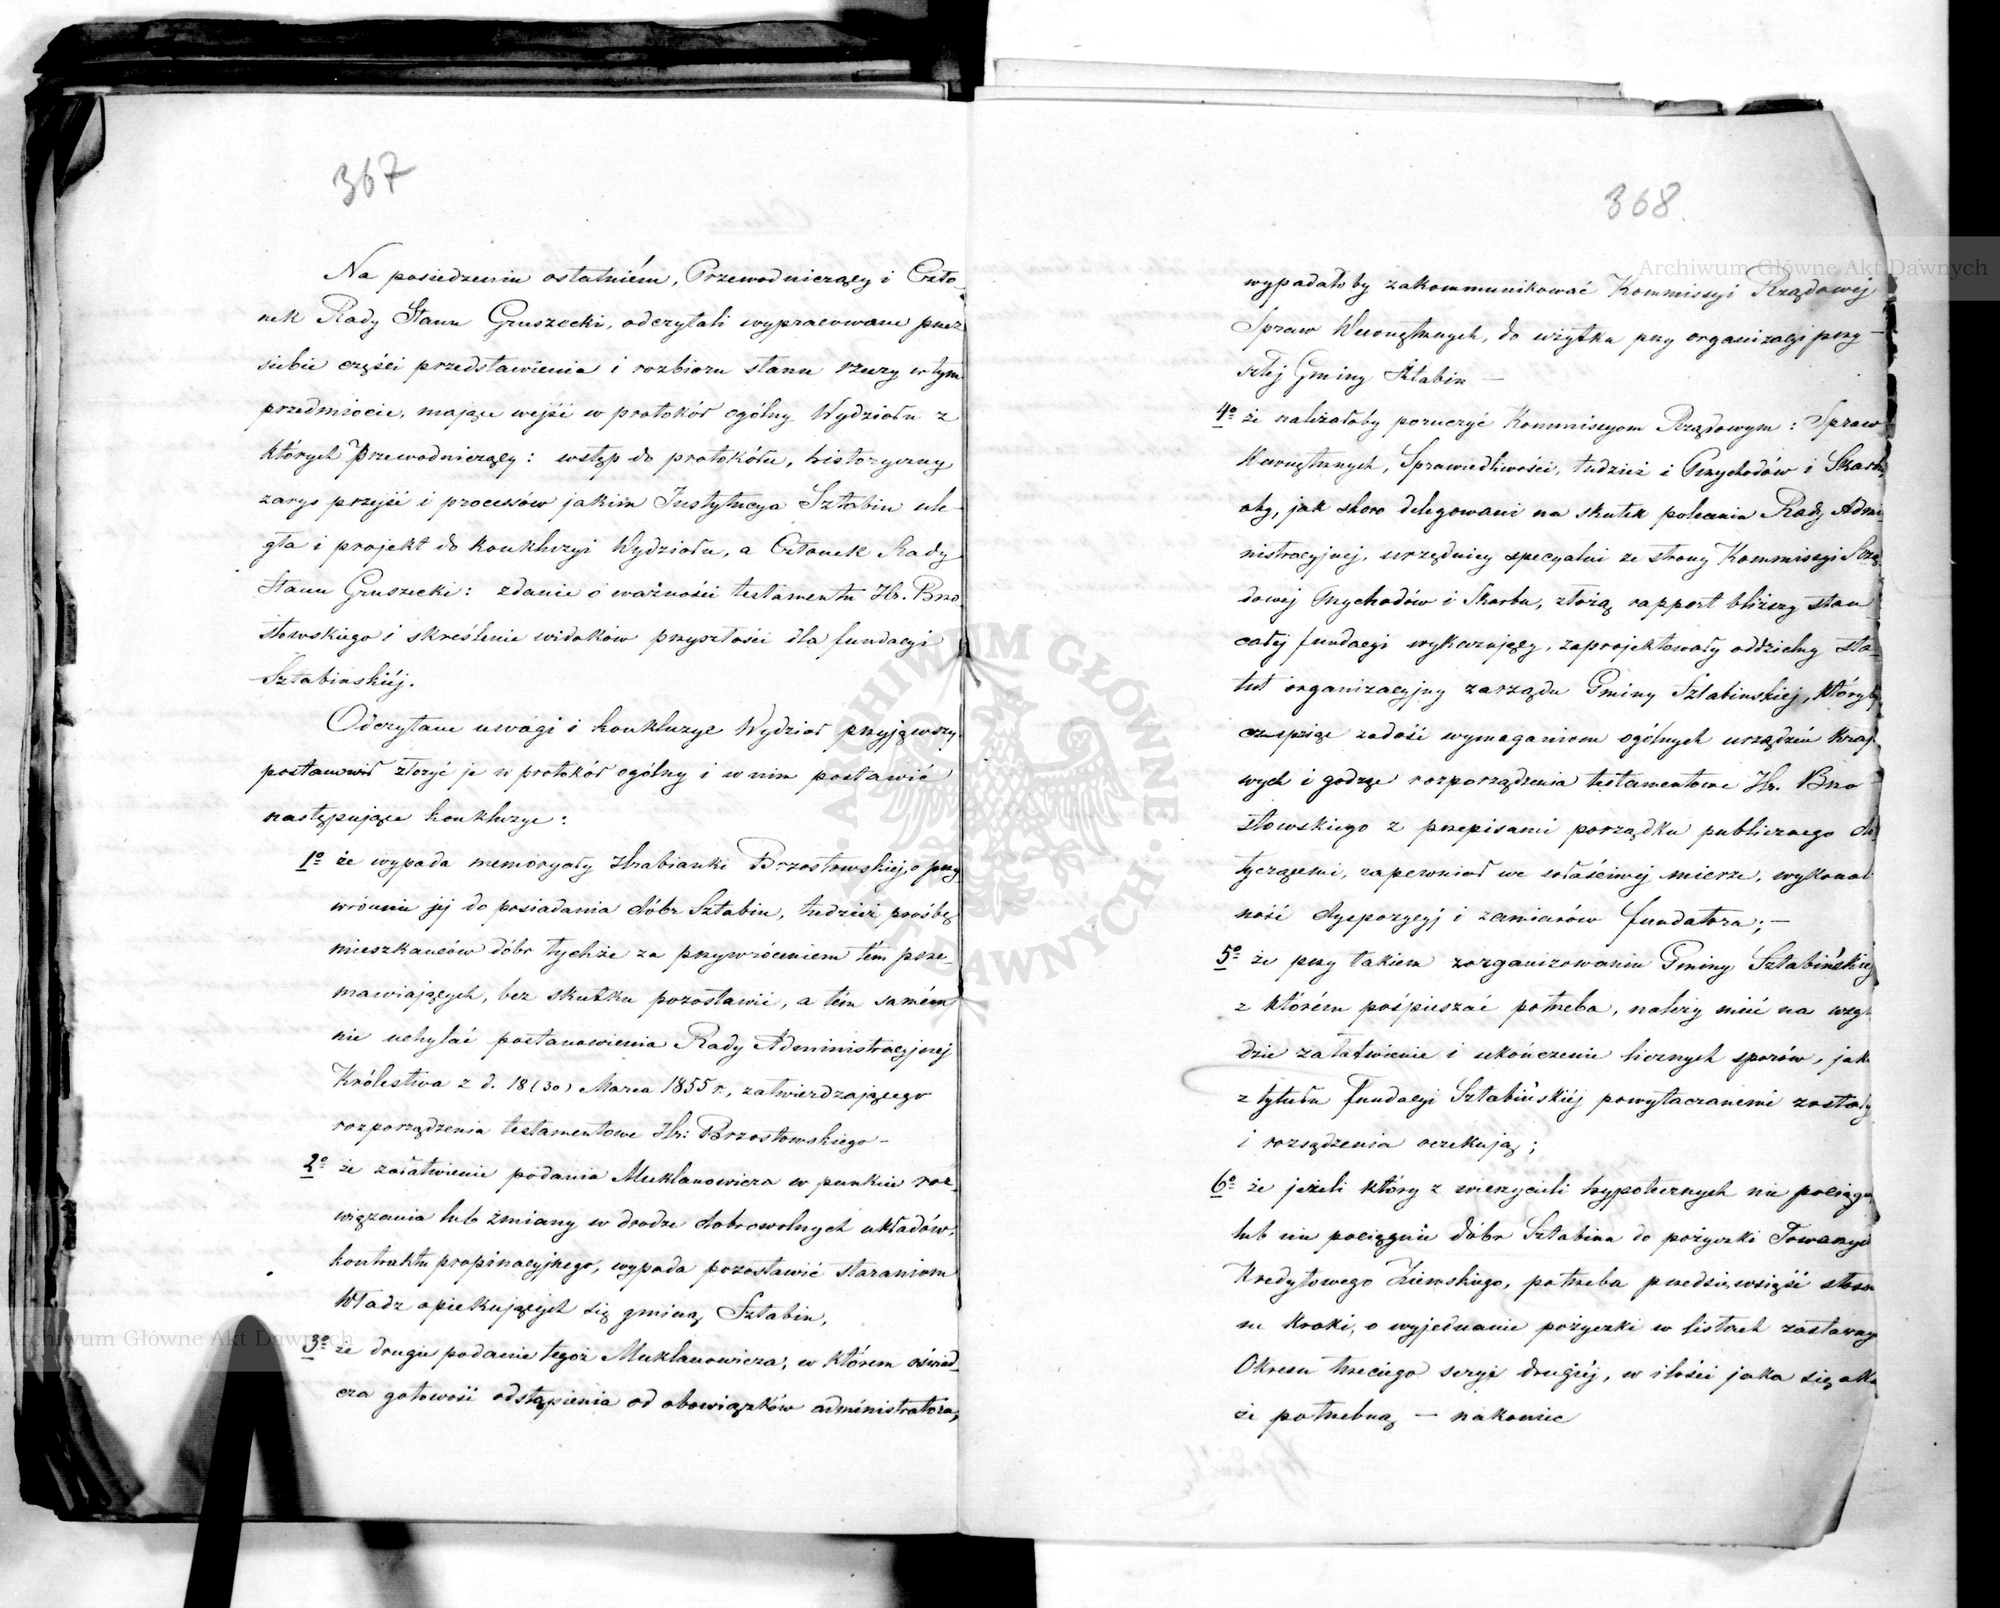 367
Na posiedzeniu ostatniém, Przewodniczący i Czło-
nek Rady Stanu Gruszecki, odczytali wypracowane przez
siebie części przedstawienia i rozbioru stanu rzeczy w tym
przedmiocie, mające wejść w protokół ogólny Wydziału z
których Przewodniczący: wstęp do protokółu, historyczny
zarys przejść i processów jakim Instytucya Sztabin ule-
gła i projekt do konkluzyi Wydziału, a Członek Rady
Stanu Gruszecki: zdanie o ważności testamentu Hr. Brzo
stowskiego i skreślenie widoków przyszłości dla fundacyi
Sztabinskiéj.
Odczytane uwagi i konkluzye Wydział przyjąwszy
postanowił złożyć je w protokół ogólny i w nim postawić
następujące konkluzye:
1o że wypada memoryały Hrabianki Brzostowskiej, o przy
wrócenie jej do posiadania dóbr Sztabin, tudzież prośbę
mieszkańców dóbr tychże za przywróceniem tém prze-
mawiających, bez skutku pozostawić, a tém samém
nie uchylać postanowienia Rady Administracyjnej
Królestwa z d. 18 (30) Marca 1855 r., zatwierdzającego
rozporządzenia testamentowe Hr: Brzostowskiego -
2o że załatwienie podania Muklanowicza w punkcie roz-
wiązania lub zmiany w drodze dobrowolnych układów,
kontraktu propinacyjnego, wypada pozostawić staraniom
Władz opiekujących się gminą Sztabin,
3o że drugie podanie tegoż Muklanowicza, w którem oświad-
cza gotowość odstąpienia od obowiązków administratora,
368.
wypadałoby zakommunikować Kommissyi Rządowej
Spraw Wewnętrznych, do użytku przy organizacyi przy-
szłej Gminy Sztabin —
4o że należałoby poruczyć Kommissyom Rządowym: Spraw
Wewnętrznych, Sprawiedliwości, tudzież i Przychodów i Skarbu,
aby, jak skoro delegowani na skutek polecenia Rady Admi-
nistracyjnej, urzędnicy specyalni ze strony Kommissyi Rzą-
dowej Przychodów i Skarbu, złożą rapport bliższy stan
całej fundacyi wykazujący, zaprojektowały oddzielny sta-
tut organizacyjny zarządu Gminy Sztabinskiej, któryby
czyniąc zadość wymaganiom ogólnych urządzeń Krajo-
wych i godząc rozporządzenia testamentowe Hr. Brzo-
stowskiego z przepisami porządku publicznego do-
tyczącemi, zapewniał we właściwej mierze, wykonal
ność dyspozycyj i zamiarów fundatora; —
5o że przy takiem zorganizowaniu Gminy Sztabińskiej
z którém pośpieszać potrzeba, należy mieć na wzglę
dzie załatwienie i ukończenie licznych sporów, jakie
z tytułu fundacyi Sztabińskiéj powytaczanemi zostały
i rozsądzenia oczekują;
6o że jeżeli który z wierzycieli hypotecznych nie pociąga
lub nie pociągnie dóbr Sztabina do pożyczki Towarzys
Kredytowego Ziemskiego, potrzeba przedsięwziąść stosow
ne kroki, o wyjednanie pożyczki w listach zastawny
Okresu trzeciego seryi drugiéj, w ilości jaka się oka
że potrzebną — nakoniec
Archiwum Główne Akt Dawnych
Archiwum Główne Akt Dawnych
ARCHIWUM GŁÓWNE AKT DAWNYCH